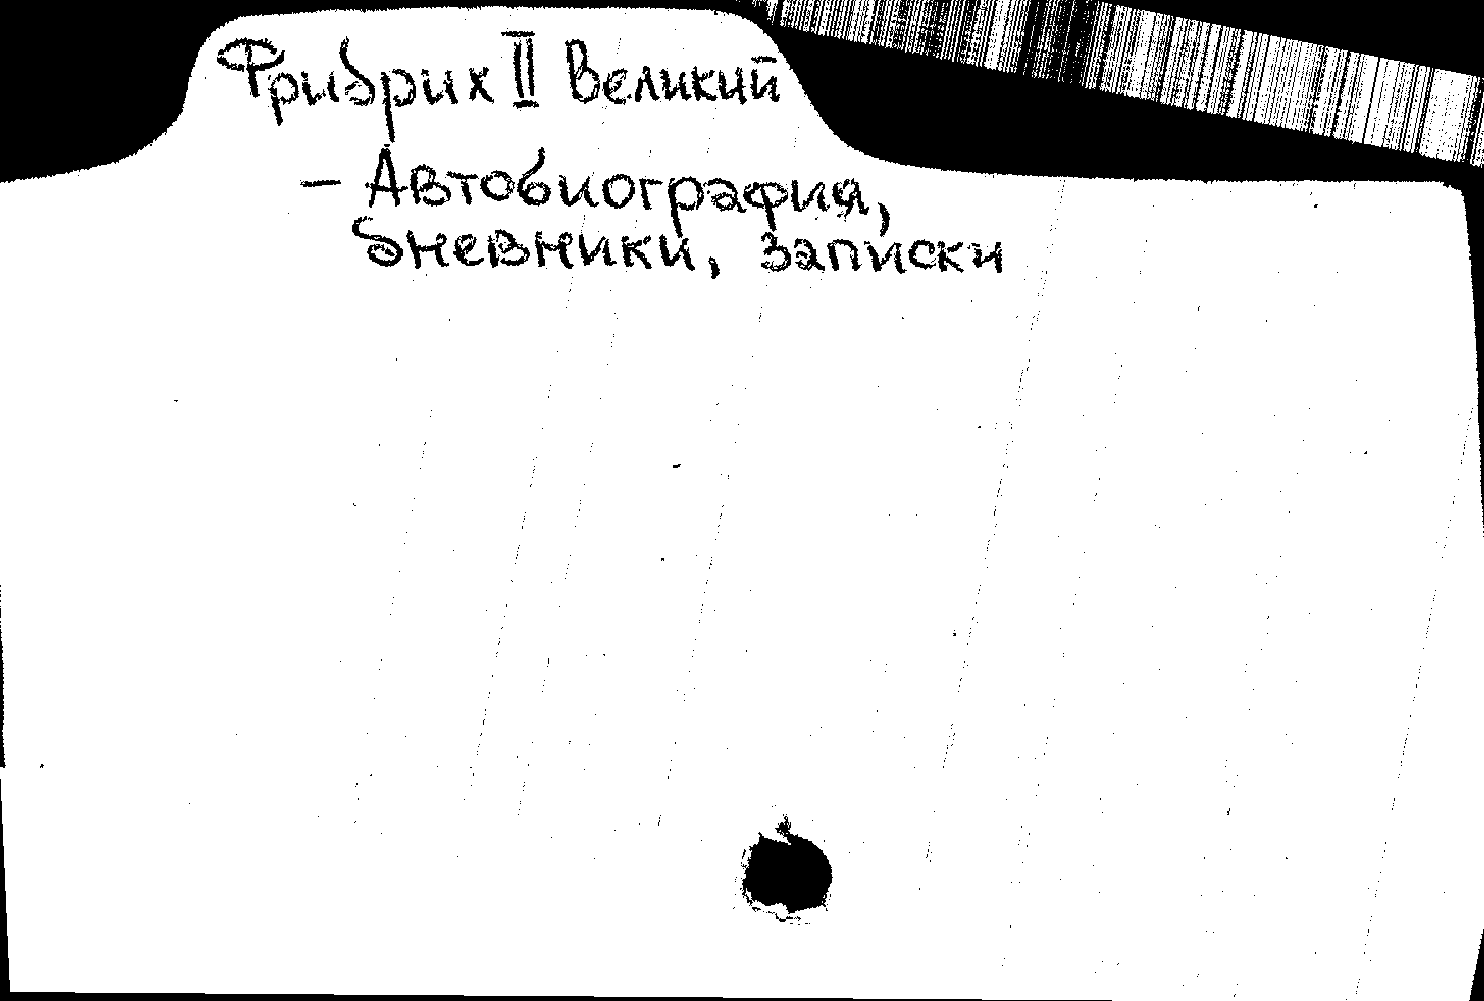 Фридрих II Великий
— Автобиография,
дневники, записки